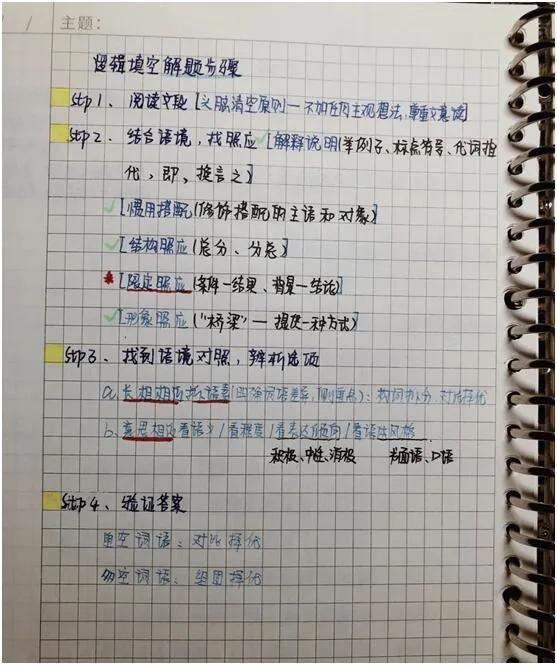 主题：
逻辑填空解题步骤
Step 1、阅读文段【头脑清空原则—不加任何主观想法，尊重文意读】
Step 2、结合语境，找照应【解释说明(举例子、标点符号、代词指
代，即，换言之)】
【惯用搭配(修饰搭配的主语和对象)】
【结构照应(总分、分总)】
【限定照应(条件—结果、背景—结论)】
【形象照应("桥梁"—提供一种方式)】
Step 3、找到语境对照，辨析选项
a. 长相相近拆语素(四强词语差异，侧重点)：构词拆分，对比择优
b. 意思相近看语义/看程度/看表达倾向/看语体风格
积极、中性、消极 书面语、口语
Step 4、验证答案
单空词语：对比择优
多空词语：组团择优